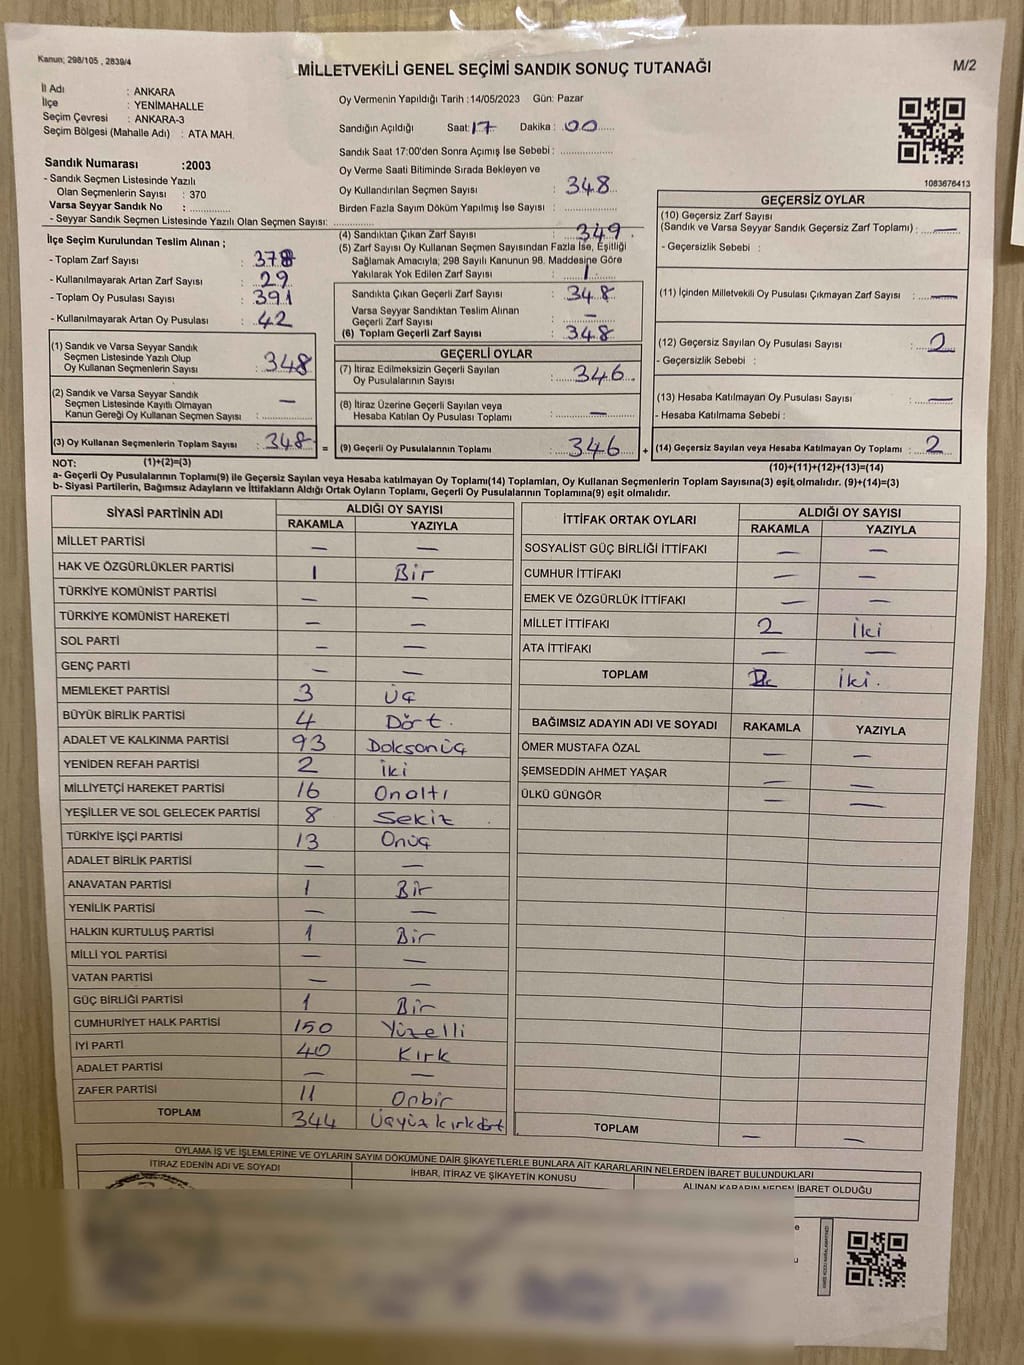 Kanun; 298/105 , 2839/4
MİLLETVEKİLİ GENEL SEÇİMİ SANDIK SONUÇ TUTANAĞI
M/2
İl Adı : ANKARA
İlçe : YENİMAHALLE
Seçim Çevresi : ANKARA-3
Seçim Bölgesi (Mahalle Adı) : ATA MAH.
Sandık Numarası :2003
- Sandık Seçmen Listesinde Yazılı
Olan Seçmenlerin Sayısı : 370
Varsa Seyyar Sandık No : ..............
- Seyyar Sandık Seçmen Listesinde Yazılı Olan Seçmen Sayısı: ..............
Oy Vermenin Yapıldığı Tarih :14/05/2023 Gün: Pazar
Sandığın Açıldığı Saat: 17 Dakika : 00
Sandık Saat 17:00'den Sonra Açımış İse Sebebi : ..............
Oy Verme Saati Bitiminde Sırada Bekleyen ve
Oy Kullandırılan Seçmen Sayısı : 348
Birden Fazla Sayım Döküm Yapılmış İse Sayısı : ..............
1083676413
İlçe Seçim Kurulundan Teslim Alınan ;
- Toplam Zarf Sayısı : 378
- Kullanılmayarak Artan Zarf Sayısı : 29
- Toplam Oy Pusulası Sayısı : 391
- Kullanılmayarak Artan Oy Pusulası : 42
(1) Sandık ve Varsa Seyyar Sandık
Seçmen Listesinde Yazılı Olup
Oy Kullanan Seçmenlerin Sayısı : 348
(2) Sandık ve Varsa Seyyar Sandık
Seçmen Listesinde Kayıtlı Olmayan
Kanun Gereği Oy Kullanan Seçmen Sayısı : —
(3) Oy Kullanan Seçmenlerin Toplam Sayısı : 348 =
(4) Sandıktan Çıkan Zarf Sayısı : 349
(5) Zarf Sayısı Oy Kullanan Seçmen Sayısından Fazla İse, Eşitliği
Sağlamak Amacıyla; 298 Sayılı Kanunun 98. Maddesine Göre
Yakılarak Yok Edilen Zarf Sayısı : 1
Sandıkta Çıkan Geçerli Zarf Sayısı : 348
Varsa Seyyar Sandıktan Teslim Alınan
Geçerli Zarf Sayısı : —
(6) Toplam Geçerli Zarf Sayısı : 348
GEÇERLİ OYLAR
(7) İtiraz Edilmeksizin Geçerli Sayılan
Oy Pusulalarının Sayısı : 346
(8) İtiraz Üzerine Geçerli Sayılan veya
Hesaba Katılan Oy Pusulası Toplamı : —
(9) Geçerli Oy Pusulalarının Toplamı : 346 +
GEÇERSİZ OYLAR
(10) Geçersiz Zarf Sayısı
(Sandık ve Varsa Seyyar Sandık Geçersiz Zarf Toplamı) : —
- Geçersizlik Sebebi :
(11) İçinden Milletvekili Oy Pusulası Çıkmayan Zarf Sayısı : —
(12) Geçersiz Sayılan Oy Pusulası Sayısı : 2
- Geçersizlik Sebebi :
(13) Hesaba Katılmayan Oy Pusulası Sayısı : —
- Hesaba Katılmama Sebebi :
(14) Geçersiz Sayılan veya Hesaba Katılmayan Oy Toplamı : 2
NOT: (1)+(2)=(3) (10)+(11)+(12)+(13)=(14)
a- Geçerli Oy Pusulalarının Toplamı(9) ile Geçersiz Sayılan veya Hesaba katılmayan Oy Toplamı(14) Toplamları, Oy Kullanan Seçmenlerin Toplam Sayısına(3) eşit olmalıdır. (9)+(14)=(3)
b- Siyasi Partilerin, Bağımsız Adayların ve İttifakların Aldığı Ortak Oyların Toplamı, Geçerli Oy Pusulalarının Toplamına(9) eşit olmalıdır.
SİYASİ PARTİNİN ADI ALDIĞI OY SAYISI
RAKAMLA YAZIYLA
MİLLET PARTİSİ — —
HAK VE ÖZGÜRLÜKLER PARTİSİ 1 Bir
TÜRKİYE KOMÜNİST PARTİSİ — —
TÜRKİYE KOMÜNİST HAREKETİ — —
SOL PARTİ — —
GENÇ PARTİ — —
MEMLEKET PARTİSİ 3 Üç
BÜYÜK BİRLİK PARTİSİ 4 Dört.
ADALET VE KALKINMA PARTİSİ 93 Doksanüç
YENİDEN REFAH PARTİSİ 2 iki
MİLLİYETÇİ HAREKET PARTİSİ 16 Onaltı
YEŞİLLER VE SOL GELECEK PARTİSİ 8 Sekiz
TÜRKİYE İŞÇİ PARTİSİ 13 Onüç
ADALET BİRLİK PARTİSİ — —
ANAVATAN PARTİSİ 1 Bir
YENİLİK PARTİSİ — —
HALKIN KURTULUŞ PARTİSİ 1 Bir
MİLLİ YOL PARTİSİ — —
VATAN PARTİSİ — —
GÜÇ BİRLİĞİ PARTİSİ 1 Bir
CUMHURİYET HALK PARTİSİ 150 Yüzelli
İYİ PARTİ 40 Kırk
ADALET PARTİSİ — —
ZAFER PARTİSİ 11 Onbir
TOPLAM 344 Üçyüzkırkdört
İTTİFAK ORTAK OYLARI ALDIĞI OY SAYISI
RAKAMLA YAZIYLA
SOSYALİST GÜÇ BİRLİĞİ İTTİFAKI — —
CUMHUR İTTİFAKI — —
EMEK VE ÖZGÜRLÜK İTTİFAKI — —
MİLLET İTTİFAKI 2 İki
ATA İTTİFAKI — —
TOPLAM iki.
BAĞIMSIZ ADAYIN ADI VE SOYADI RAKAMLA YAZIYLA
ÖMER MUSTAFA ÖZAL — —
ŞEMSEDDİN AHMET YAŞAR — —
ÜLKÜ GÜNGÖR — —
TOPLAM — —
OYLAMA İŞ VE İŞLEMLERİNE VE OYLARIN SAYIM DÖKÜMÜNE DAİR ŞİKAYETLERLE BUNLARA AİT KARARLARIN NELERDEN İBARET BULUNDUKLARI
İTİRAZ EDENİN ADI VE SOYADI İHBAR, İTİRAZ VE ŞİKAYETİN KONUSU ALINAN KARARIN NEDEN İBARET OLDUĞU